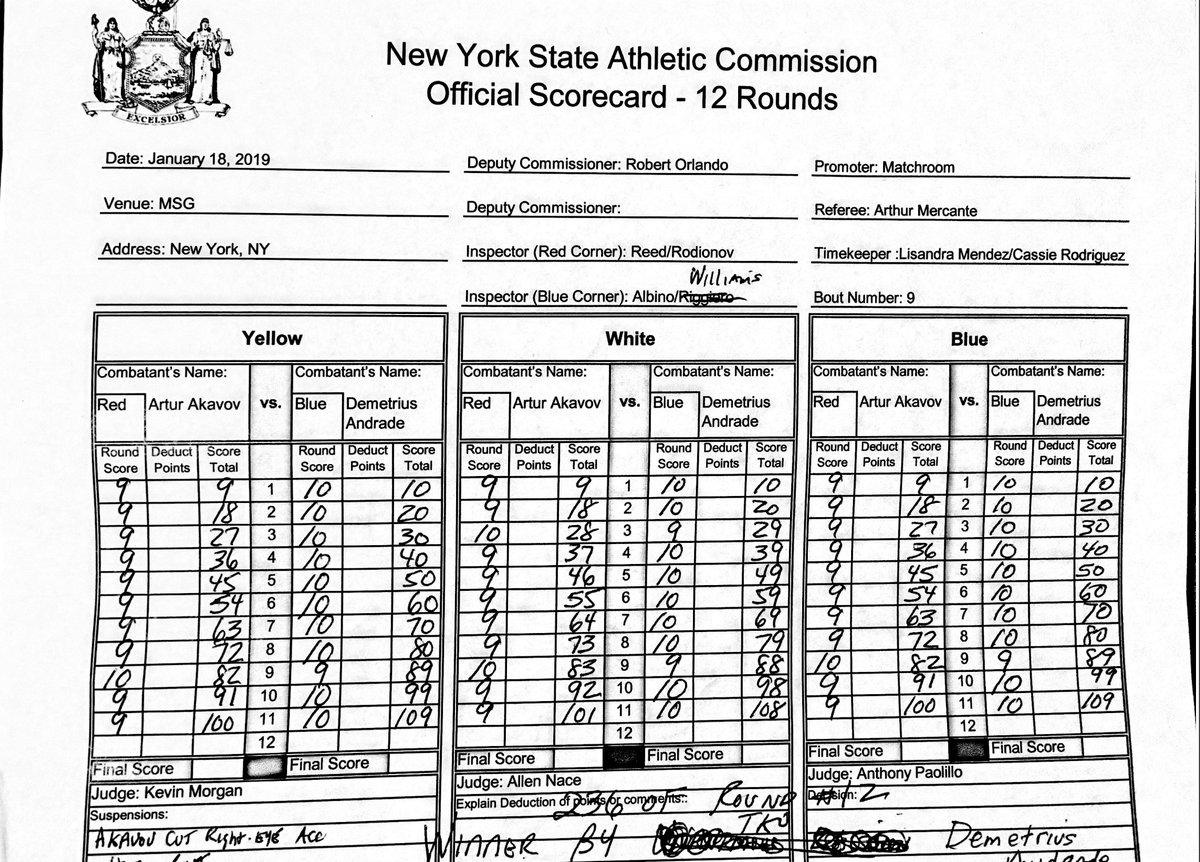 EXCELSIOR
New York State Athletic Commission
Official Scorecard - 12 Rounds
Date: January 18, 2019 Deputy Commissioner: Robert Orlando Promoter: Matchroom
Venue: MSG Deputy Commissioner: Referee: Arthur Mercante
Address: New York, NY Inspector (Red Corner): Reed/Rodionov Timekeeper :Lisandra Mendez/Cassie Rodriguez
Williams
Inspector (Blue Corner): Albino/ Bout Number: 9
Yellow White Blue
Combatant's Name: Combatant's Name: Combatant's Name: Combatant's Name: Combatant's Name: Combatant's Name:
Red Artur Akavov vs. Blue Demetrius Red Artur Akavov vs. Blue Demetrius Red Artur Akavov vs. Blue Demetrius
Andrade Andrade Andrade
Round Deduct Score Round Deduct Score Round Deduct Score Round Deduct Score Round Deduct Score Round Deduct Score
Score Points Total Score Points Total Score Points Total Score Points Total Score Points Total Score Points Total
9 9 1 10 10 9 9 1 10 10 9 9 1 10 10
9 18 2 10 20 9 18 2 10 20 9 18 2 10 20
9 27 3 10 30 10 28 3 9 29 9 27 3 10 30
9 36 4 10 40 9 37 4 10 39 9 36 4 10 40
9 45 5 10 50 9 46 5 10 49 9 45 5 10 50
9 54 6 10 60 9 55 6 10 59 9 54 6 10 60
9 63 7 10 70 9 64 7 10 69 9 63 7 10 70
9 72 8 10 80 9 73 8 10 79 9 72 8 10 80
10 82 9 9 89 10 83 9 9 88 10 82 9 9 89
9 91 10 10 99 9 92 10 10 98 9 91 10 10 99
9 100 11 10 109 9 101 11 10 108 9 100 11 10 109
12 12 12
Final Score Final Score Final Score Final Score Final Score Final Score
Judge: Kevin Morgan Judge: Allen Nace Judge: Anthony Paolillo
Suspensions: Explain Deduction of points or comments: Decision:
2:36 OF ROUND #12
AKAVOV CUT Right EYE ACC
WINNER BY TKO Demetrius